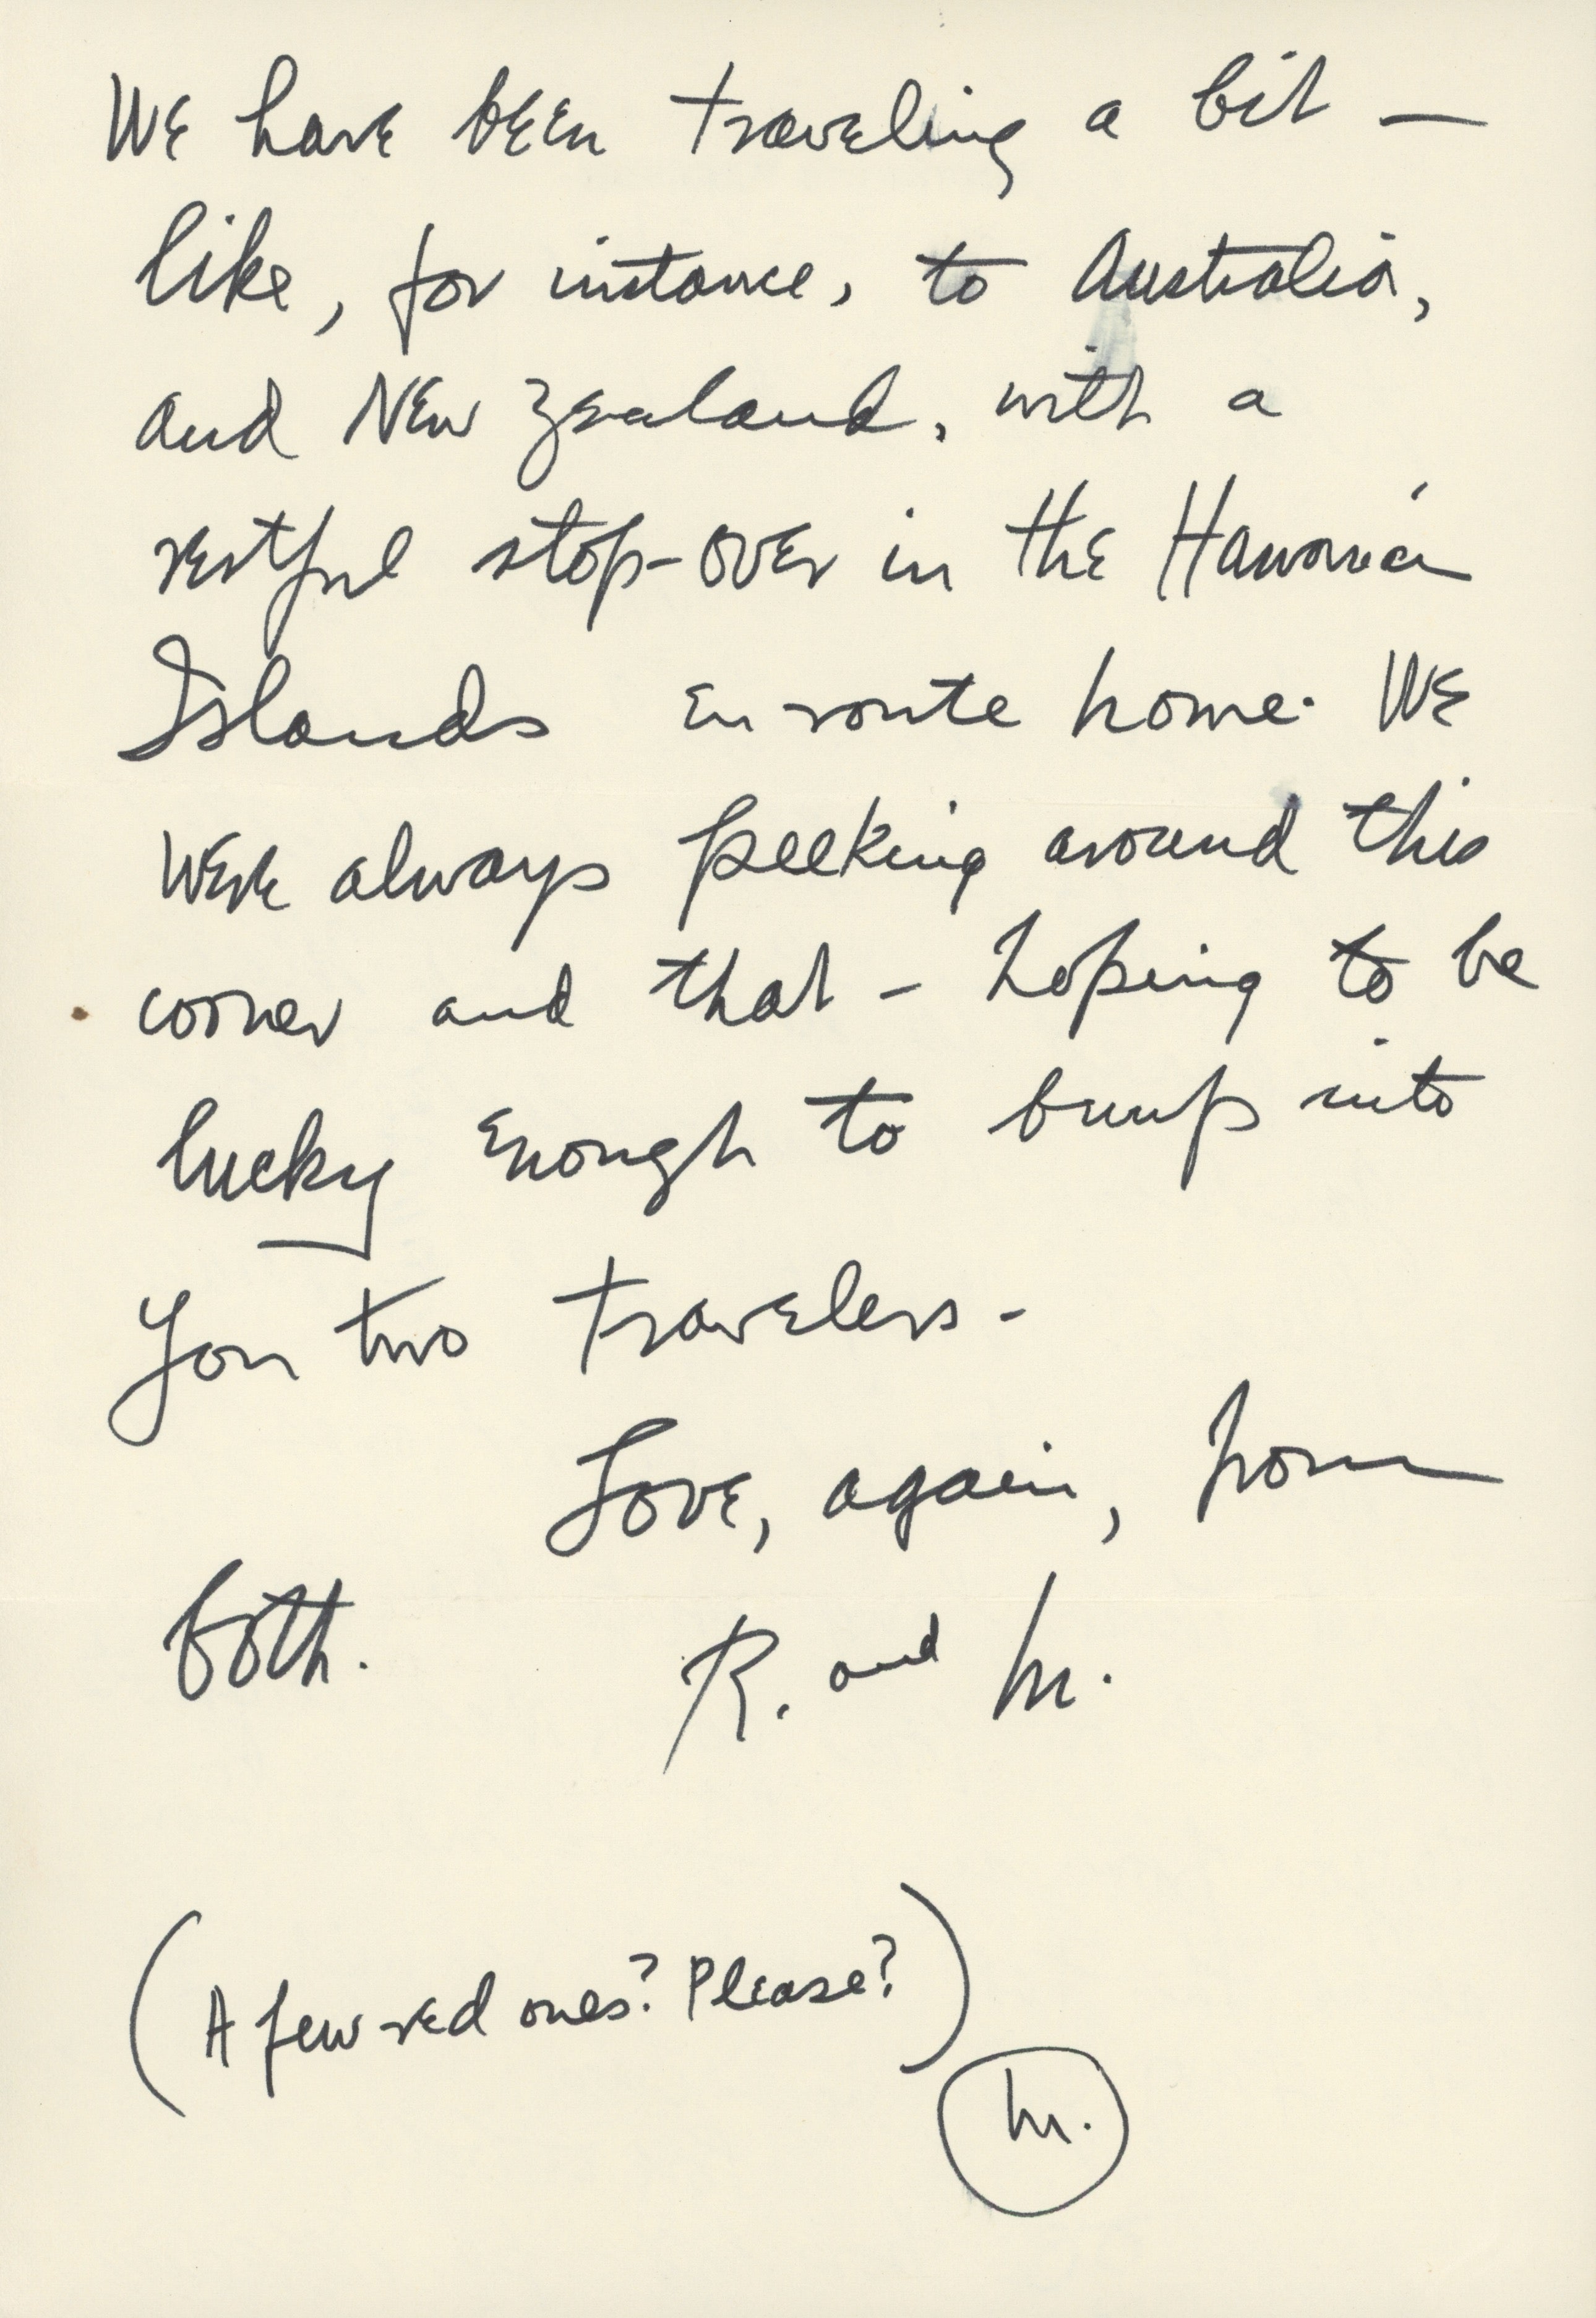 We have been traveling a bit —
like, for instance, to Australia,
and New Zealand, with a
restful stop-over in the Hawaiian
Islands en route home. We
were always peeking around this
corner and that - hoping to be
lucky enough to bump into
you two travelers -
Love, again, from
both. R. and M.
(A few red ones? Please?)
M.